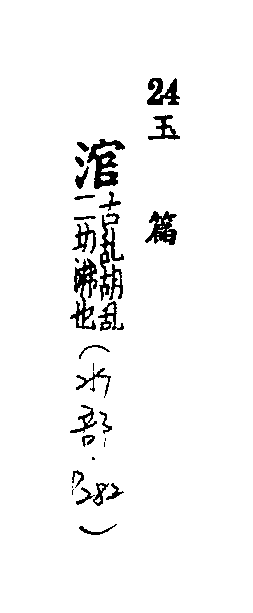 24
玉篇
涫古乱胡乱二切沸也(水部·P282)